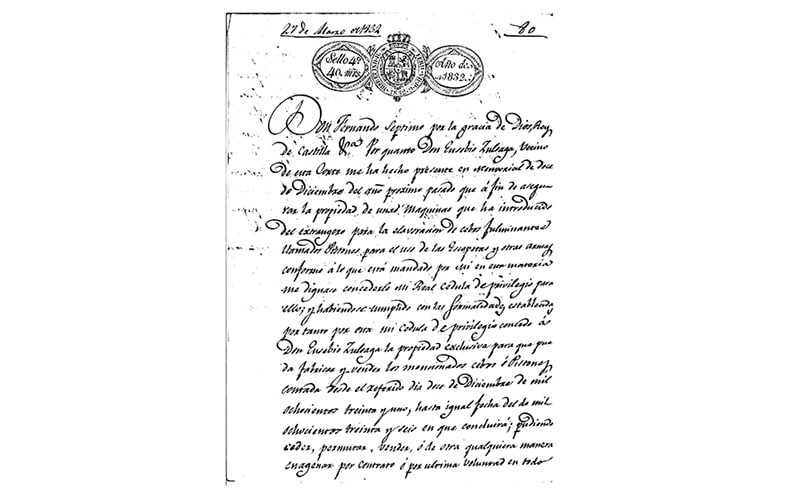 27 de Marzo de 1832
80
Sello 4º
40. mrs.
Año de
1832.
Don Fernando Septimo por la gracia de Dios Rey
de Castilla &ca. Por quanto Don Eusebio Zuloaga, Vecino
de esta Corte me ha hecho presente en memorial de doce
de Diciembre del año proximo pasado que á fin de asegu-
rar la propiedad de unas Maquinas que ha introducido
del extrangero para la elavoracion de cebos fulminantes
llamados Pistones, para el uso de las Escopetas y otras armas,
conforme á lo que está mandado por mi en esta materia
me dignase concederle mi Real cedula de privilegio para
ello; y habiendose cumplido con las formalidades establecidas
por tanto por esta mi cedula de privilegio concedo á
Don Eusebio Zuloaga la propiedad exclusiva para que pue-
da fabricar y vender los mencionados cebos ó Pistones,
contada desde el referido dia doce de Diciembre de mil
ochocientos treinta y uno, hasta igual fecha del de mil
ochocientos treinta y seis en que concluirá; pudiendo
ceder, permutar, vender, ó de otra qualquiera manera
enagenar por contrato ó por ultima voluntad en todo